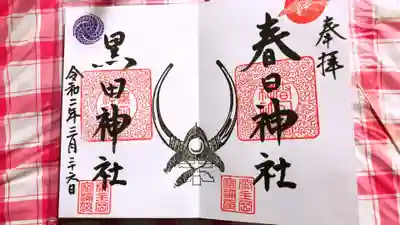 奉拝
春日神社
黒田神社
令和二年三月二十六日